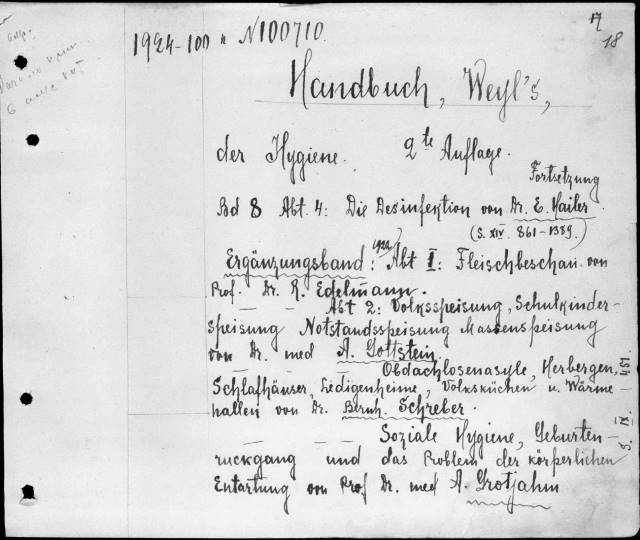 18
1924-100 " N100710.
Handbuch, Weyl's,
der Hygiene. 2te Auflage.
Fortsetzung
Bd 8 Abt. 4: Die Desinfektion von Dr. E. Hailer.
(S. XIV. 861-1389.)
1922
Ergänzungsband: Abt I: Fleischbeschau von
Prof. Dr. R. Edelmann.
— — Abt 2: Volksspeisung, Schulkinder-
speisung Notstandsspeisung Massenspeisung
von Dr. med A. Gottstein.
Obdachlosenasyle, Herbergen,
Schlafhäuser, Ledigenheime, Volksküchen u. Wärme-
hallen von Dr. Bernh. Schreber.
— — — Soziale Hygiene, Geburten-
rückgang und das Problem der körperlichen
Entartung von Prof Dr. med A. Grotjahn
S. IX. 451.